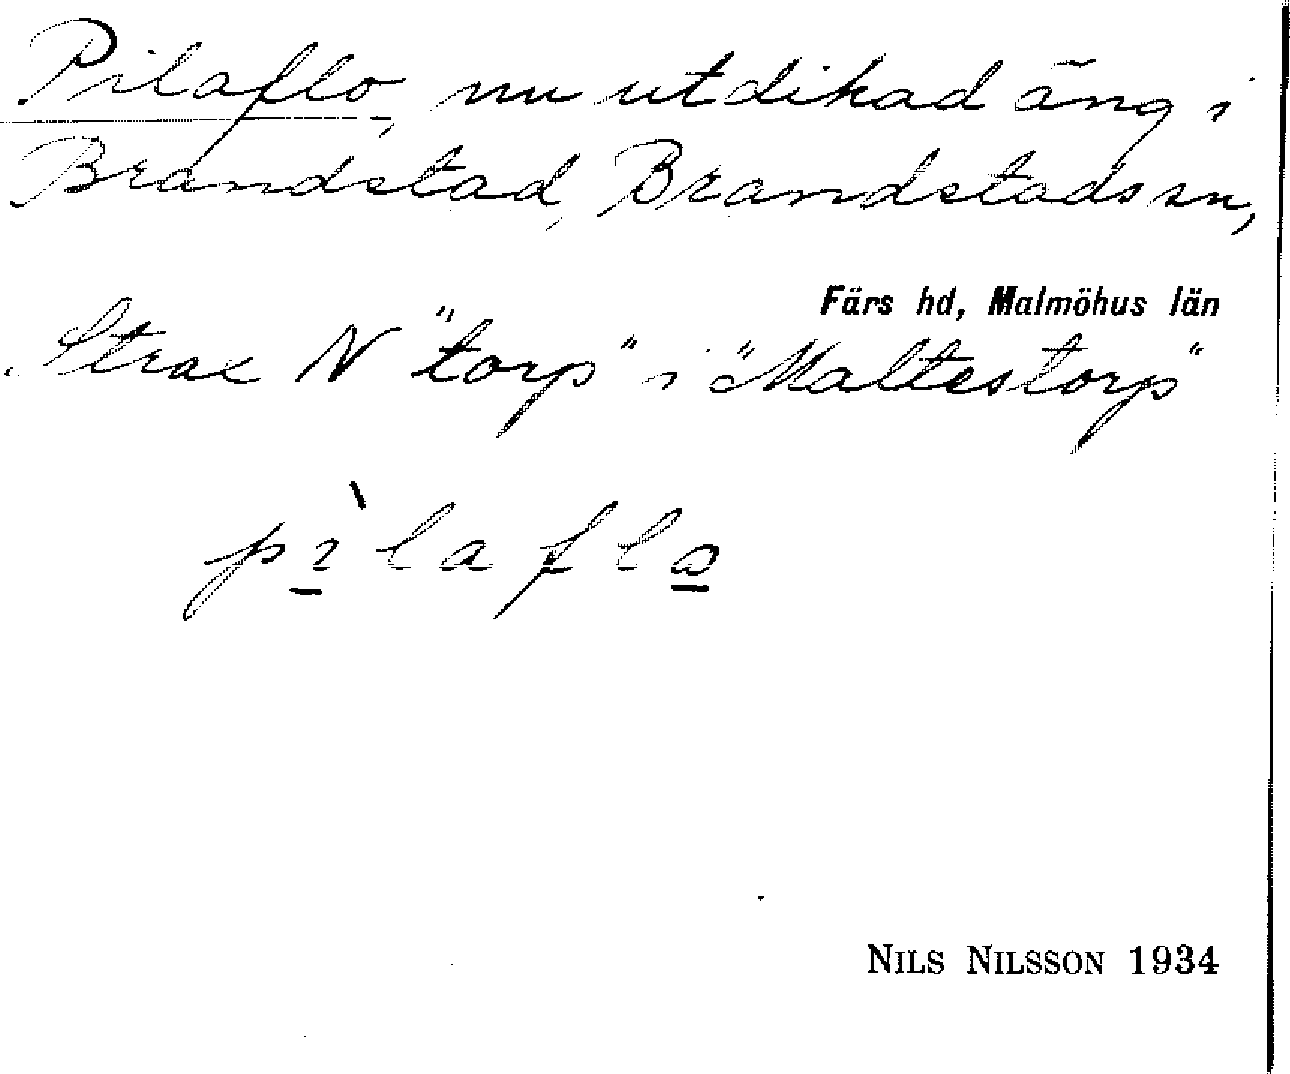 Pilaflo, nu utdikad äng i
Brandstad, Brandstads sn,
Färs hd, Malmöhus län
Strax N "torp" i "Maltestorp"
pìlaflo
NILS NILSSON 1934